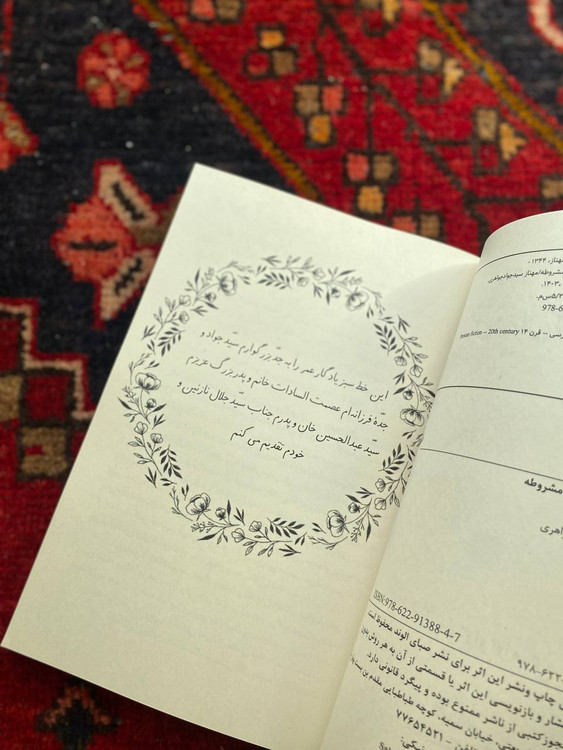 این خط سبز یادگار عمر را به جدّ بزرگوارم سیّد جواد و
جدّهٔ فرزانه‌ام عصمت السادات خانم و پدربزرگ عزیزم
سیّد عبدالحسین خان و پدرم جناب سیّد جلال نازنین و
خودم تقدیم می کنم
مهناز، ۱۳۴۴
مشروطه/مهناز سیدجوادجواهری.
۱۴۰۳.
۵/۲۱س‌م.
978-6
Persian fiction -- 20th century رسی -- قرن ۱۴
مشروطه
اهری
ISBN:978-622-91388-4-7
۹۷۸-۶۲۲
چاپ ونشر این اثر برای نشر صبای الوند محفوظ است
شار و بازنویسی این اثر یا قسمتی از آن به هر روش بدون
مجوزکتبی از ناشر ممنوع بوده و پیگرد قانونی دارد.
خیابان سمیه، کوچه طباطبایی مقدم بن بست
تلفن - ۷۷۶۵۴۵۲۱